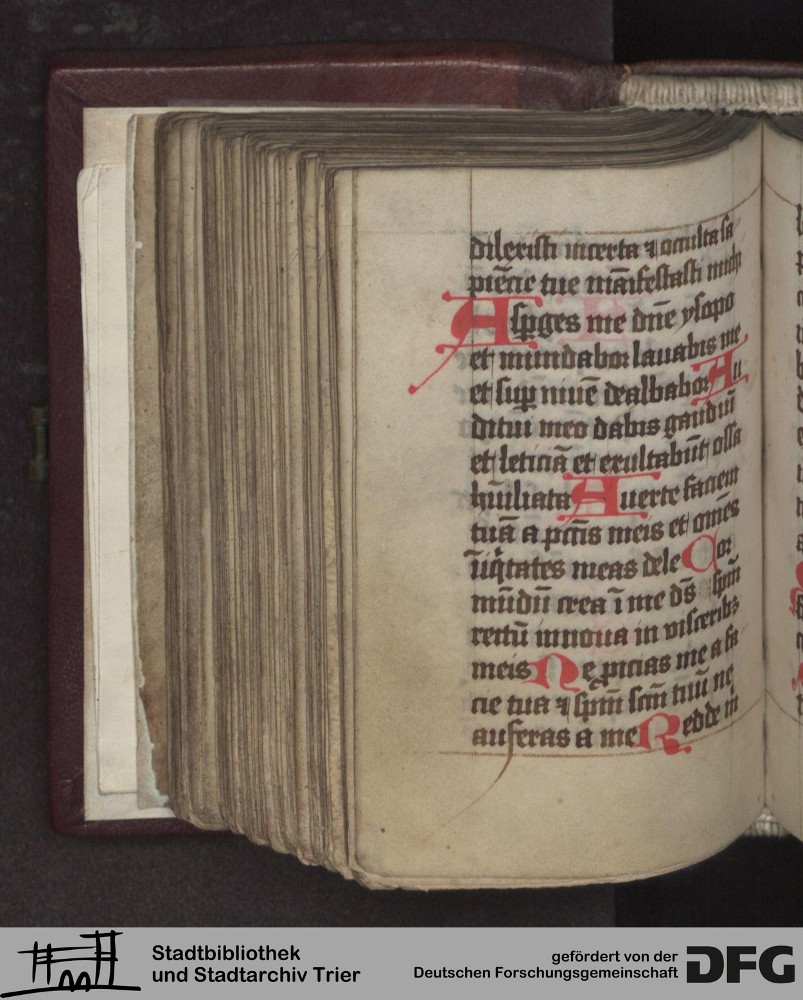 dilexisti incerta ⁊ occulta sa
pie͞cie tue ma͞ifestasti michi
Asp̱ges me dn͞e ysopo
et mundabor lauabis me
et sup̱ niue͞ dealbabor Au
ditui meo dabis gaudiu͞
et leticia͞ et exultabu͞t ossa
hu͞iliata Auerte faciem
tua͞ a pcc͞is meis et om͞es
i͞iq̇tates meas dele Cor
mu͞du͞ crea i͞ me ds͞ sp͞m
rectu͞ innoua in visceribꝫ
meis Ne p̱icias me a fa
cie tua ⁊ sp͞m sc͞m tuu͞ ne
auferas a me Redde m
Stadtbibliothek
und Stadtarchiv Trier
gefördert von der
Deutschen Forschungsgemeinschaft
DFG